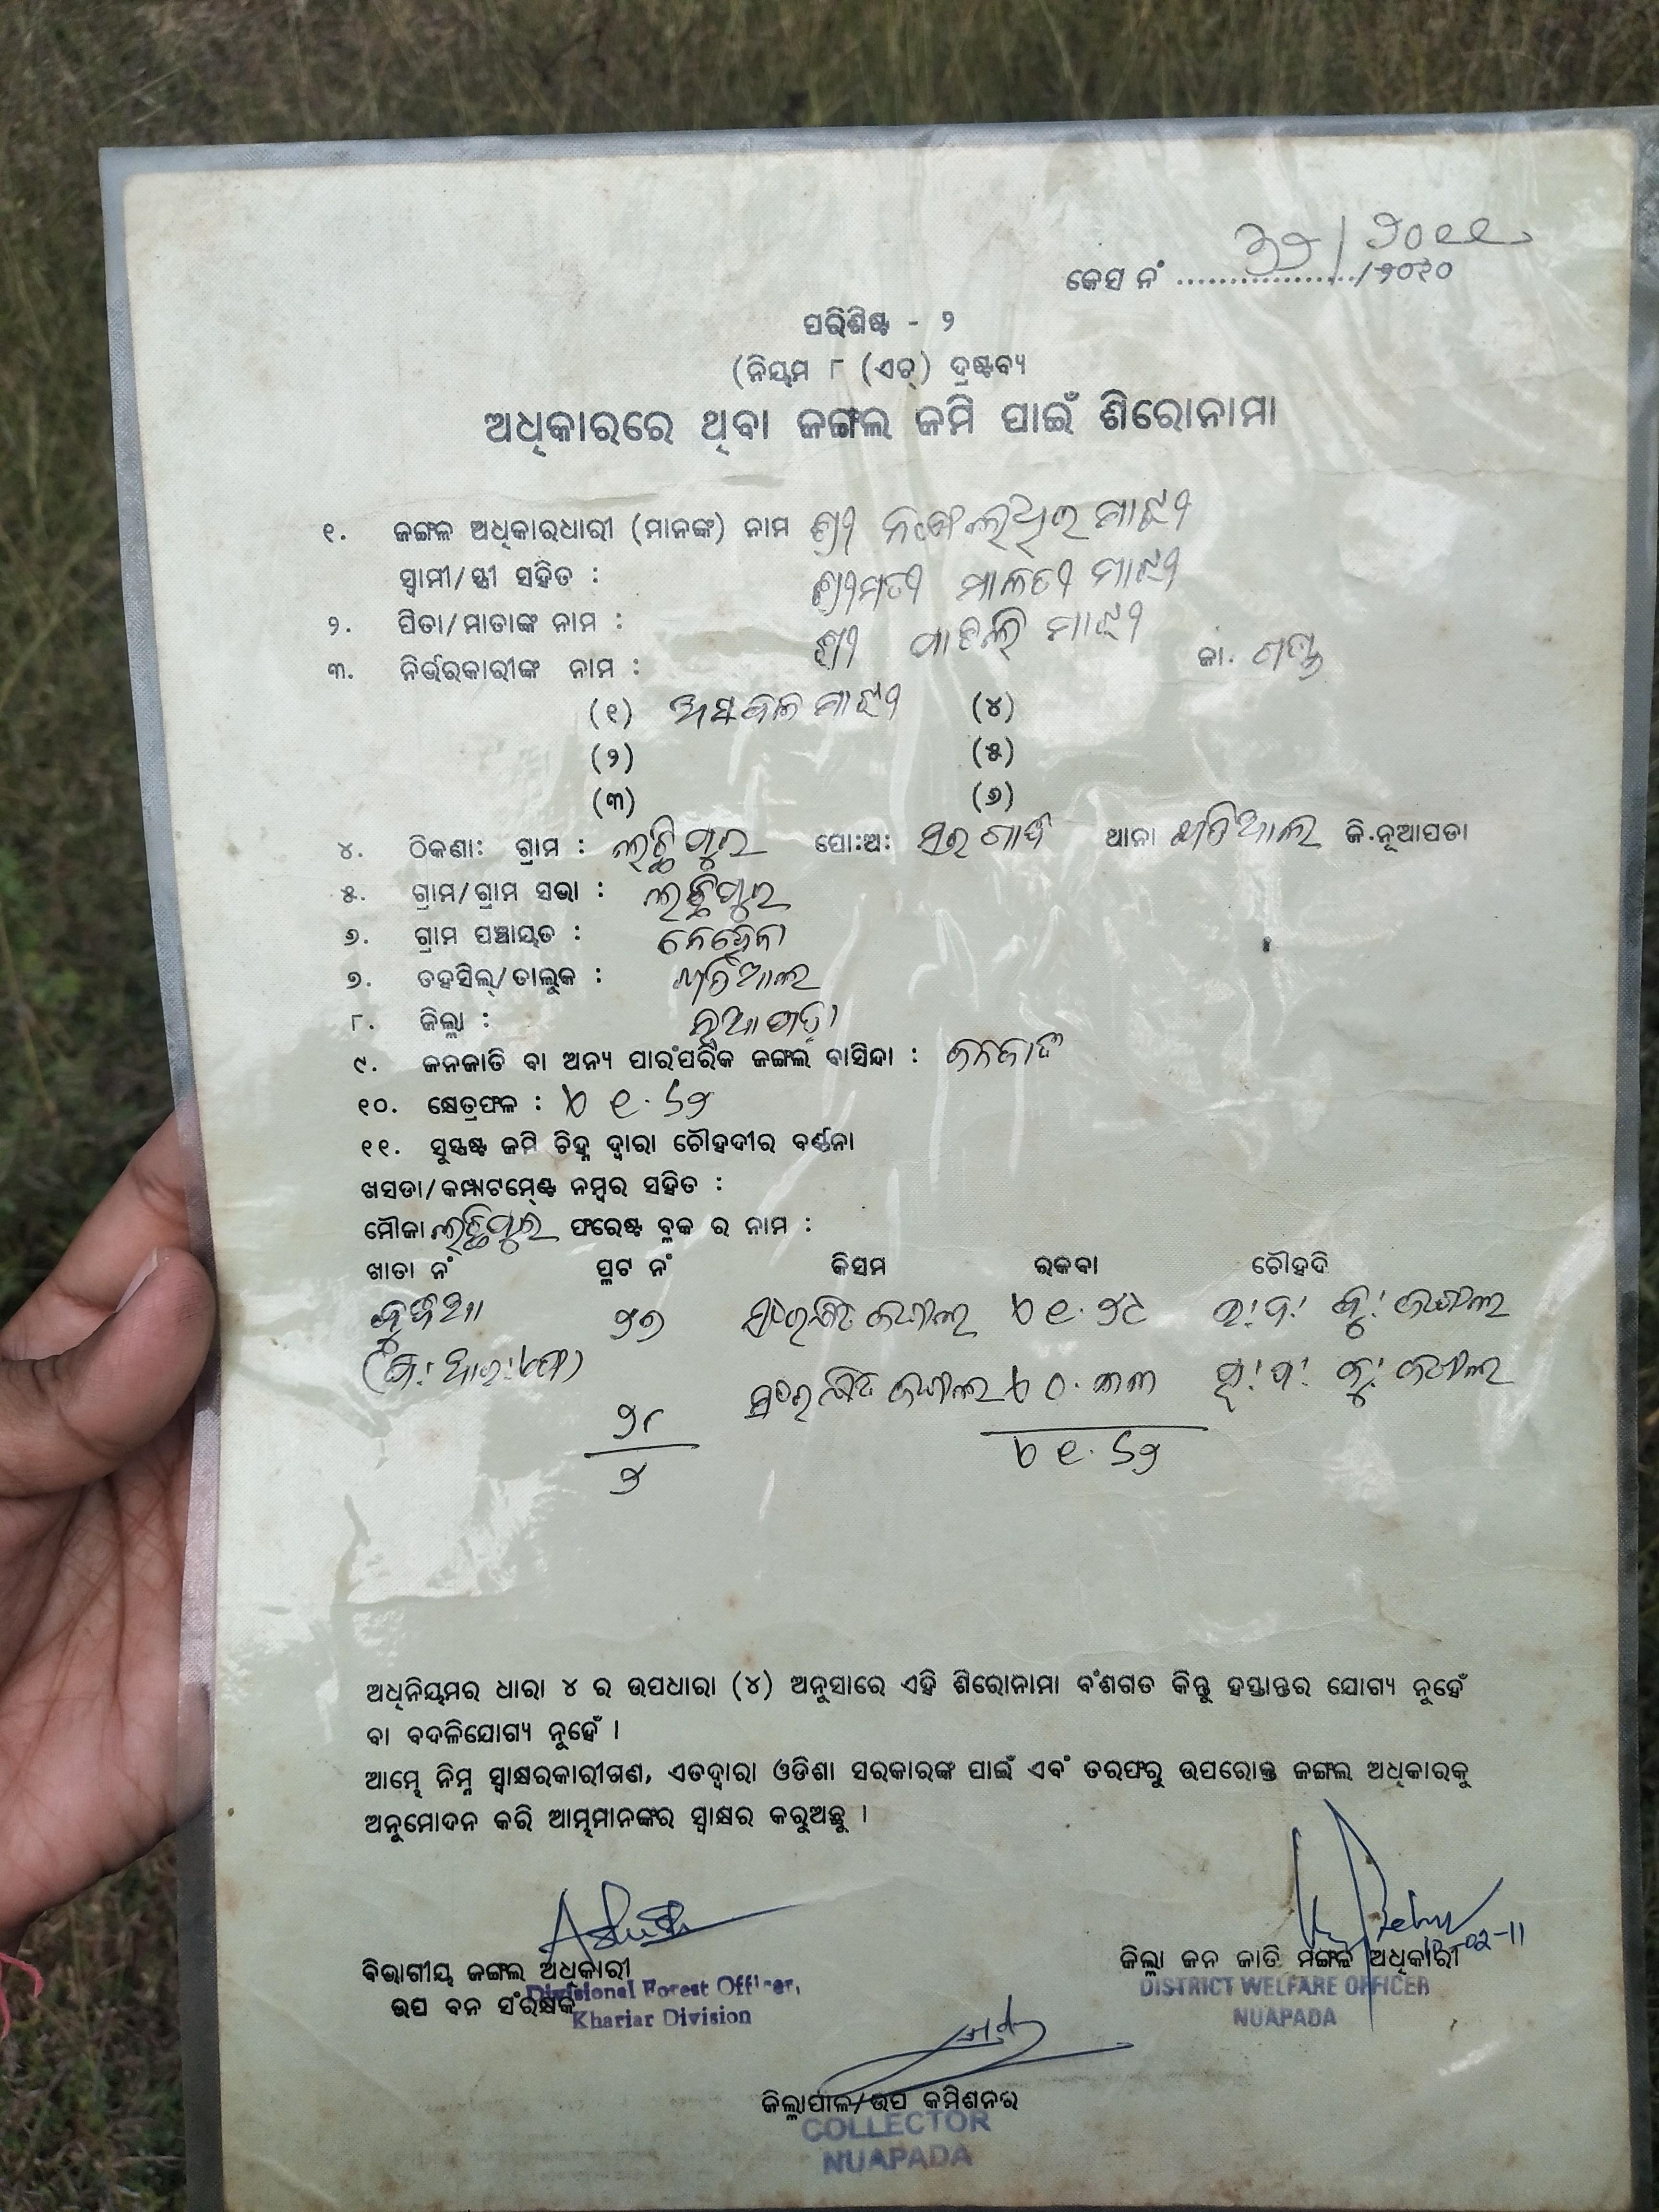 /୨୦୧୧
କେସ ନଂ ................../୨୦୧୦
ପରିଶିଷ୍ଟ - ୨
(ନିୟମ ୮ (ଏଚ୍) ଦ୍ରଷ୍ଟବ୍ୟ
ଅଧିକାରରେ ଥିବା ଜଙ୍ଗଲ ଜମି ପାଇଁ ଶିରୋନାମା
୧. ଜଙ୍ଗଲ ଅଧିକାରଧାରୀ (ମାନଙ୍କ) ନାମ ଶ୍ରୀ ମାଝୀ
ସ୍ୱାମୀ/ସ୍ତ୍ରୀ ସହିତ : ଶ୍ରୀମତୀ ମାଳତୀ ମାଝୀ
୨. ପିତା/ମାତାଙ୍କ ନାମ : ଶ୍ରୀ ମାଝୀ
୩. ନିର୍ଭରକାରୀଙ୍କ ନାମ : ଜା. ଗଣ୍ଡ
(୧) ମାଝୀ (୪)
(୨) (୫)
(୩) (୬)
୪. ଠିକଣା: ଗ୍ରାମ : ଲଛିପୁର ପୋ:ଅ: ଥାନା ଖଡିଆଲ ଜି.ନୂଆପଡା
୫. ଗ୍ରାମ/ଗ୍ରାମ ସଭା : ଲଛିପୁର
୬. ଗ୍ରାମ ପଞ୍ଚାୟତ :
୭. ତହସିଲ୍/ତାଲୁକ : ଖଡିଆଲ
୮. ଜିଲ୍ଲା : ନୂଆପଡ଼ା
୯. ଜନଜାତି ବା ଅନ୍ୟ ପାରଂପରିକ ଜଙ୍ଗଲ ବାସିନ୍ଦା : ଜନଜାତି
୧୦. କ୍ଷେତ୍ରଫଳ :
୧୧. ସୁସ୍ପଷ୍ଟ ଜମି ଚିହ୍ନ ଦ୍ୱାରା ଚୌହଦୀର ବର୍ଣ୍ଣନା
ଖସଡା/କମ୍ପାଟମେଣ୍ଟ ନମ୍ବର ସହିତ :
ମୌଜା ଲଛିପୁର ଫରେଷ୍ଟ ବ୍ଳକ ର ନାମ :
ଖାତା ନଂ ପ୍ଳଟ ନଂ କିସମ ରକବା ଚୌହଦି
୨୭ ଜଙ୍ଗଲ ଜଙ୍ଗଲ
ଜଙ୍ଗଲ ୦.୩୩ ଜଙ୍ଗଲ
୨୮
୨
ଅଧିନିୟମର ଧାରା ୪ ର ଉପଧାରା (୪) ଅନୁସାରେ ଏହି ଶିରୋନାମା ବଂଶଗତ କିନ୍ତୁ ହସ୍ତାନ୍ତର ଯୋଗ୍ୟ ନୁହେଁ
ବା ବଦଳିଯୋଗ୍ୟ ନୁହେଁ ।
ଆମ୍ଭେ ନିମ୍ନ ସ୍ୱାକ୍ଷରକାରୀଗଣ, ଏତଦ୍ଵାରା ଓଡିଶା ସରକାରଙ୍କ ପାଇଁ ଏବଂ ତରଫରୁ ଉପରୋକ୍ତ ଜଙ୍ଗଲ ଅଧିକାରକୁ
ଅନୁମୋଦନ କରି ଆମ୍ଭମାନଙ୍କର ସ୍ୱାକ୍ଷର କରୁଅଛୁ ।
ବିଭାଗୀୟ ଜଙ୍ଗଲ ଅଧିକାରୀ
ଉପ ବନ ସଂରକ୍ଷକ
Divisional Forest Officer,
Khariar Division
ଜିଲ୍ଲା ଜନ ଜାତି ମଙ୍ଗଳ ଅଧିକାରୀ
DISTRICT WELFARE OFFICER
NUAPADA
ଜିଲ୍ଲାପାଳ/ଉପ କମିଶନର
COLLECTOR
NUAPADA